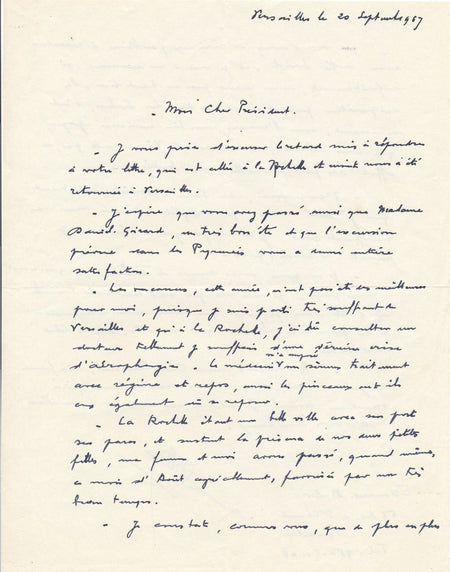 Versailles le 20 Septembre 1957
- Mon Cher Président.
- Je vous prie d'excuser le retard mis à répondre
à votre lettre, qui est allée à la Rochelle et m'a été
retournée à Versailles.
- J'espère que vous avez passé ainsi que Madame
David-Girard, un très bon été et que l'excursion
prévue dans les Pyrénées vous a donné entière
satisfaction.
- Les vacances, cette année, n'ont pas été des meilleures
pour moi, puisque je suis parti très souffrant de
Versailles et qu'à la Rochelle, j'ai dû consulter un
docteur tellement je souffrais d'une sérieuse crise
d'aérophagie. - Le médecin m'a imposé un sérieux traitement
avec régime et repos, aussi les pinceaux ont ils
eux également dû se reposer.
- La Rochelle étant une belle ville avec son port
ses parcs, et surtout la présence de nos deux petites
filles, ma femme et moi avons passé, quand même,
ce mois d'Août agréablement, favorisés par un très
beau temps.
- Je constate, comme vous, que de plus en plus